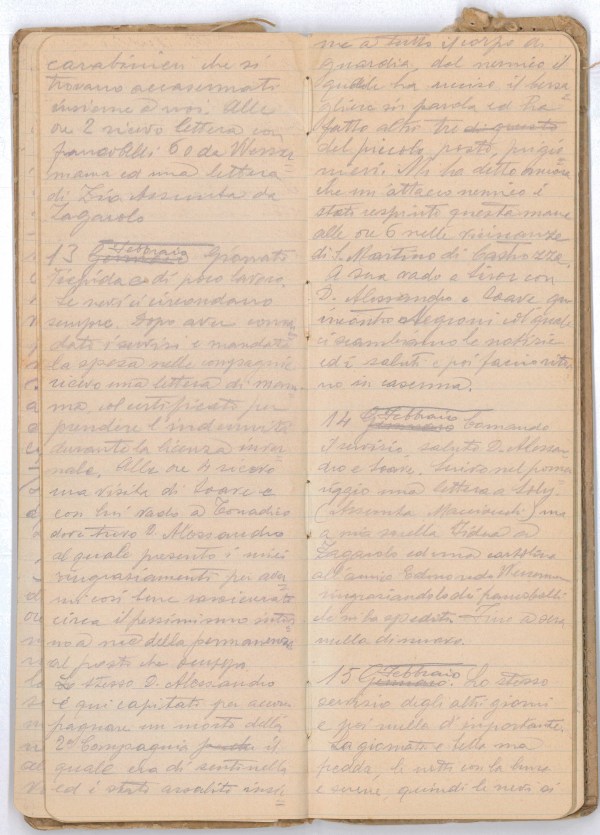 carabinieri che si
trovano accasermati
insieme a noi. Alle
ore 2 ricevo lettera con
francobolli 60 da
mamma ed una lettera
di Zia Assunta da
Zagarolo
13 Gennaio Febbraio Giornata
tiepida e di poco lavoro.
Le nevi ci circondano
sempre. Dopo aver coman
dati i servizi e mandata
la spesa nelle compagnie
ricevo una lettera di mam
ma, col certificato per
prendere l'indennità
durante la licenza inver
nale. Alle ore 4 ricevo
una visita di Soave e
con lui vado a Tonadico
dove trovo D. Alessandro
al quale presento i miei
ringraziamenti per aver
mi così bene rassicurato
circa il pessimismo
no a me della permanenza
al posto che
Lo stesso D. Alessandro
è qui capitato per accom
pagnare un morto della
2a Compagnia il
quale era di sentinella
ed è stato assalito insie
me a tutto il corpo di
guardia dal nemico il
quale ha ucciso il bersa
gliere in parola ed ha
fatto altri tre di questo
del piccolo posto, prigio
nieri. Mi ha detto ancora
che un attacco nemico è
stato respinto questa mane
alle ore 6 nelle vicinanze
di S. Martino di Castrozza.
A sera vado a Siror con
D. Alessandro e Soave qui
incontro Negroni col quale
ci scambiamo le notizie
ed i saluti e poi faccio ritor
no in caserma.
14 Gennaio Febbraio Comando
i servizi, saluto D. Alessan
dro e Soave. Scrivo nel pome
riggio una lettera a
(Assunta ) una
a mia sorella a
Zagarolo ed una cartolina
all'amico Edmondo
ringraziandolo dei francobolli
che mi ha spediti. Fino a sera
nulla di nuovo.
15 Gennaio Febbraio. Lo stesso
servizio degli altri giorni
e poi nulla d'importante.
La giornata è bella ma
fredda, le notti con la luna
e serene, quindi le nevi si